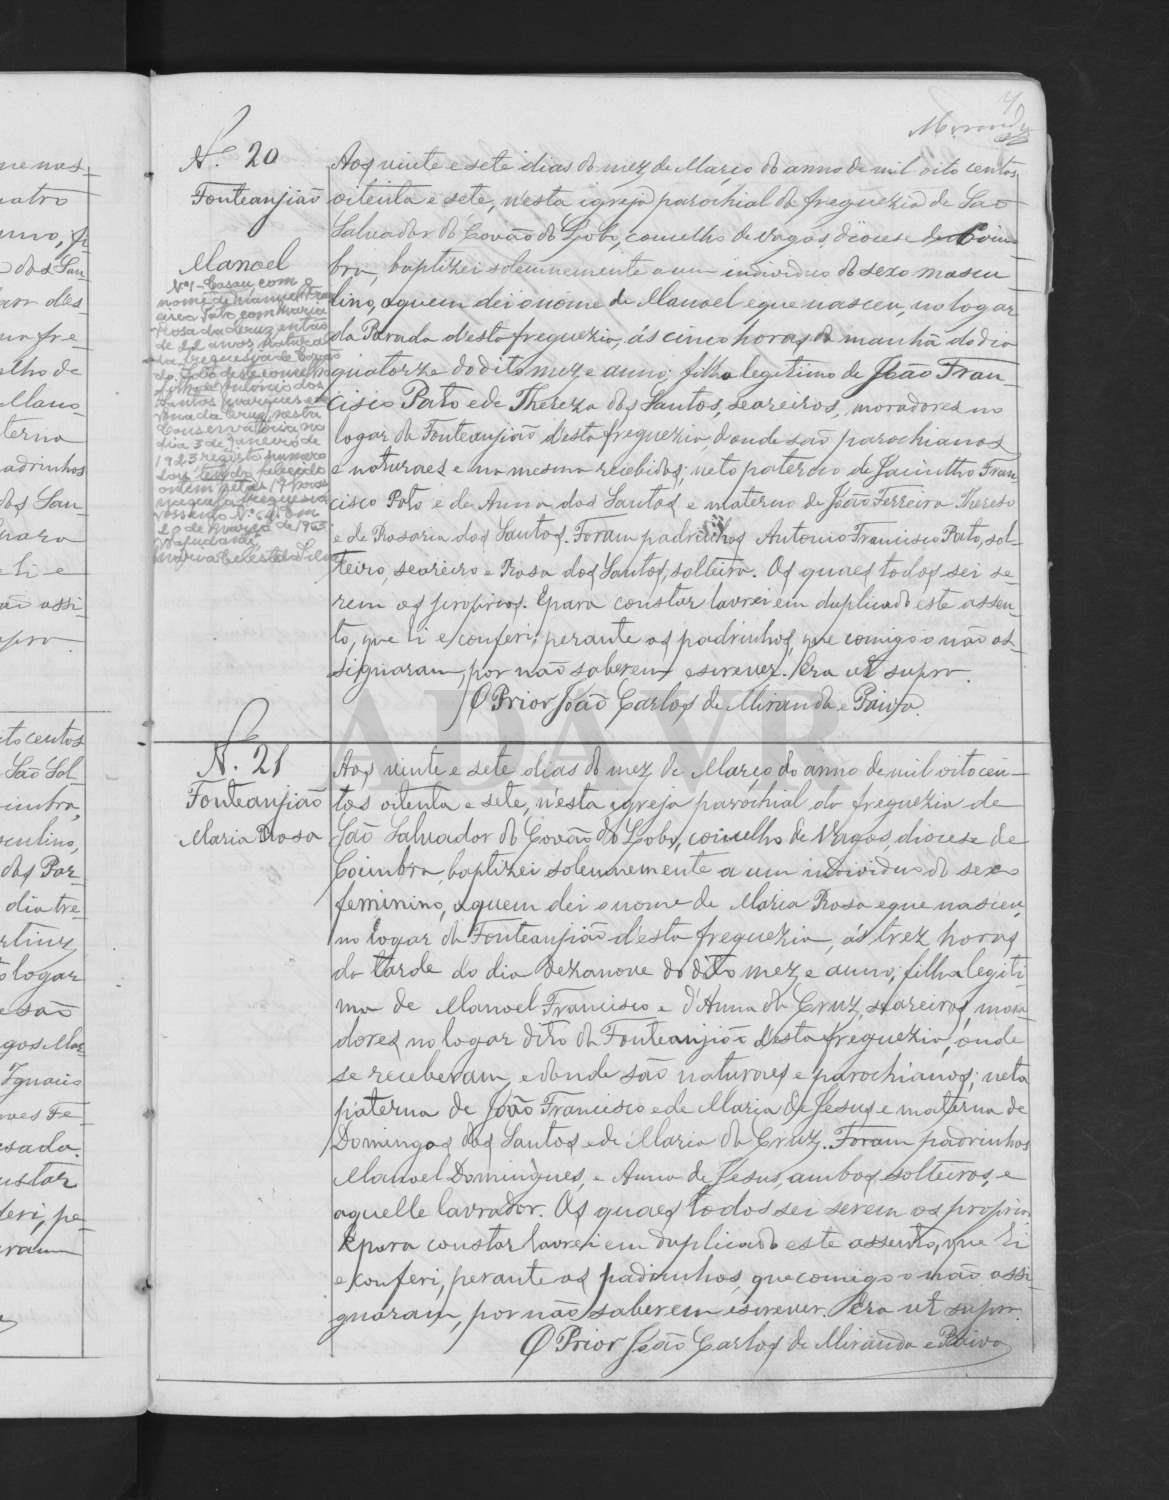 Miranda
N.º 20
Fonteanjião
Manoel
Nº 1 - Casou, com o
nome de Manuel Fran
cisco Pato, com Maria
Rosa da Cruz, então
de 22 anos, natural
da freguesia de Covão
do Lobo deste concelho
filha de António dos
Santos
Rosa da Cruz, nesta
Conservatória no
dia 3 de Janeiro de
1923 registo numero
dois, tendo falecido
ontem pelas 17 horas
freguesia
20 de Março de 1963
O Ajudante,
Maria Celeste
Aos vinte e sete dias do mez de Março do anno de mil oito centos
oitenta e sete, n'esta igreja parochial da freguezia de São
Salvador do Covão do Lobo, comcelho de Vagos, diocese de Coim
bra, baptizei solemnemente a um individuo do sexo mascu
lino, a quem dei o nome de Manoel e que nasceu, no logar
da Parada d'esta freguezia, ás cinco horas da manhã do dia
quatorze do dito mez e anno; filho legitimo de João Fran-
cisco Pato e de Thereza dos Santos, seareiros, moradores no
logar da Fonteanjião d'esta freguezia, d'onde são parochianos
e naturaes e na mesma recebidos; neto paterno de Jacintho Fran
cisco Pato e de Anna dos Santos e materno de João Ferreira Thereso
e de Rosaria dos Santos. Foram padrinhos Antonio Francisco Pato, sol-
teiro, seareiro e Rosa dos Santos, solteira. Os quaes todos sei se-
rem os proprios. E para constar lavrei em duplicado este assen-
to, que li e conferi, perante os padrinhos, que comigo o não as-
signaram, por não saberem escrever. Era ut supra.
O Prior João Carlos de Miranda e Paiva.
N.º 21
Fonteanjião
Maria Rosa
Aos vinte e sete dias do mez de Março do anno de mil oito cen-
tos oitenta e sete, n'esta igreja parochial da freguezia de
São Salvador do Covão do Lobo, comcelho de Vagos, diocese de
Coimbra, baptizei solemnemente a um individuo do sexo
feminino, a quem dei o nome de Maria Rosa e que nasceu,
no logar da Fonteanjião d'esta freguezia, ás trez horas
da tarde do dia dezanove do dito mez e anno; filha legiti-
ma de Manoel Francisco e d'Anna da Cruz, seareiros, mora-
dores no logar dito da Fonteanjião d'esta freguezia, onde
se receberam, e donde são naturaes e parochianos; neta
paterna de João Francisco e de Maria de Jesus e materna de
Domingos dos Santos e de Maria da Cruz. Foram padrinhos
Manoel Domingues, e Anna de Jesus, ambos solteiros, e
aquelle lavrador. Os quaes todos sei serem os proprios.
E para constar lavrei em duplicado este assento, que li
e conferi, perante os padrinhos, que comigo o não assi-
gnaram, por não saberem escrever. Era ut supra.
O Prior João Carlos de Miranda e Paiva
ADAVR